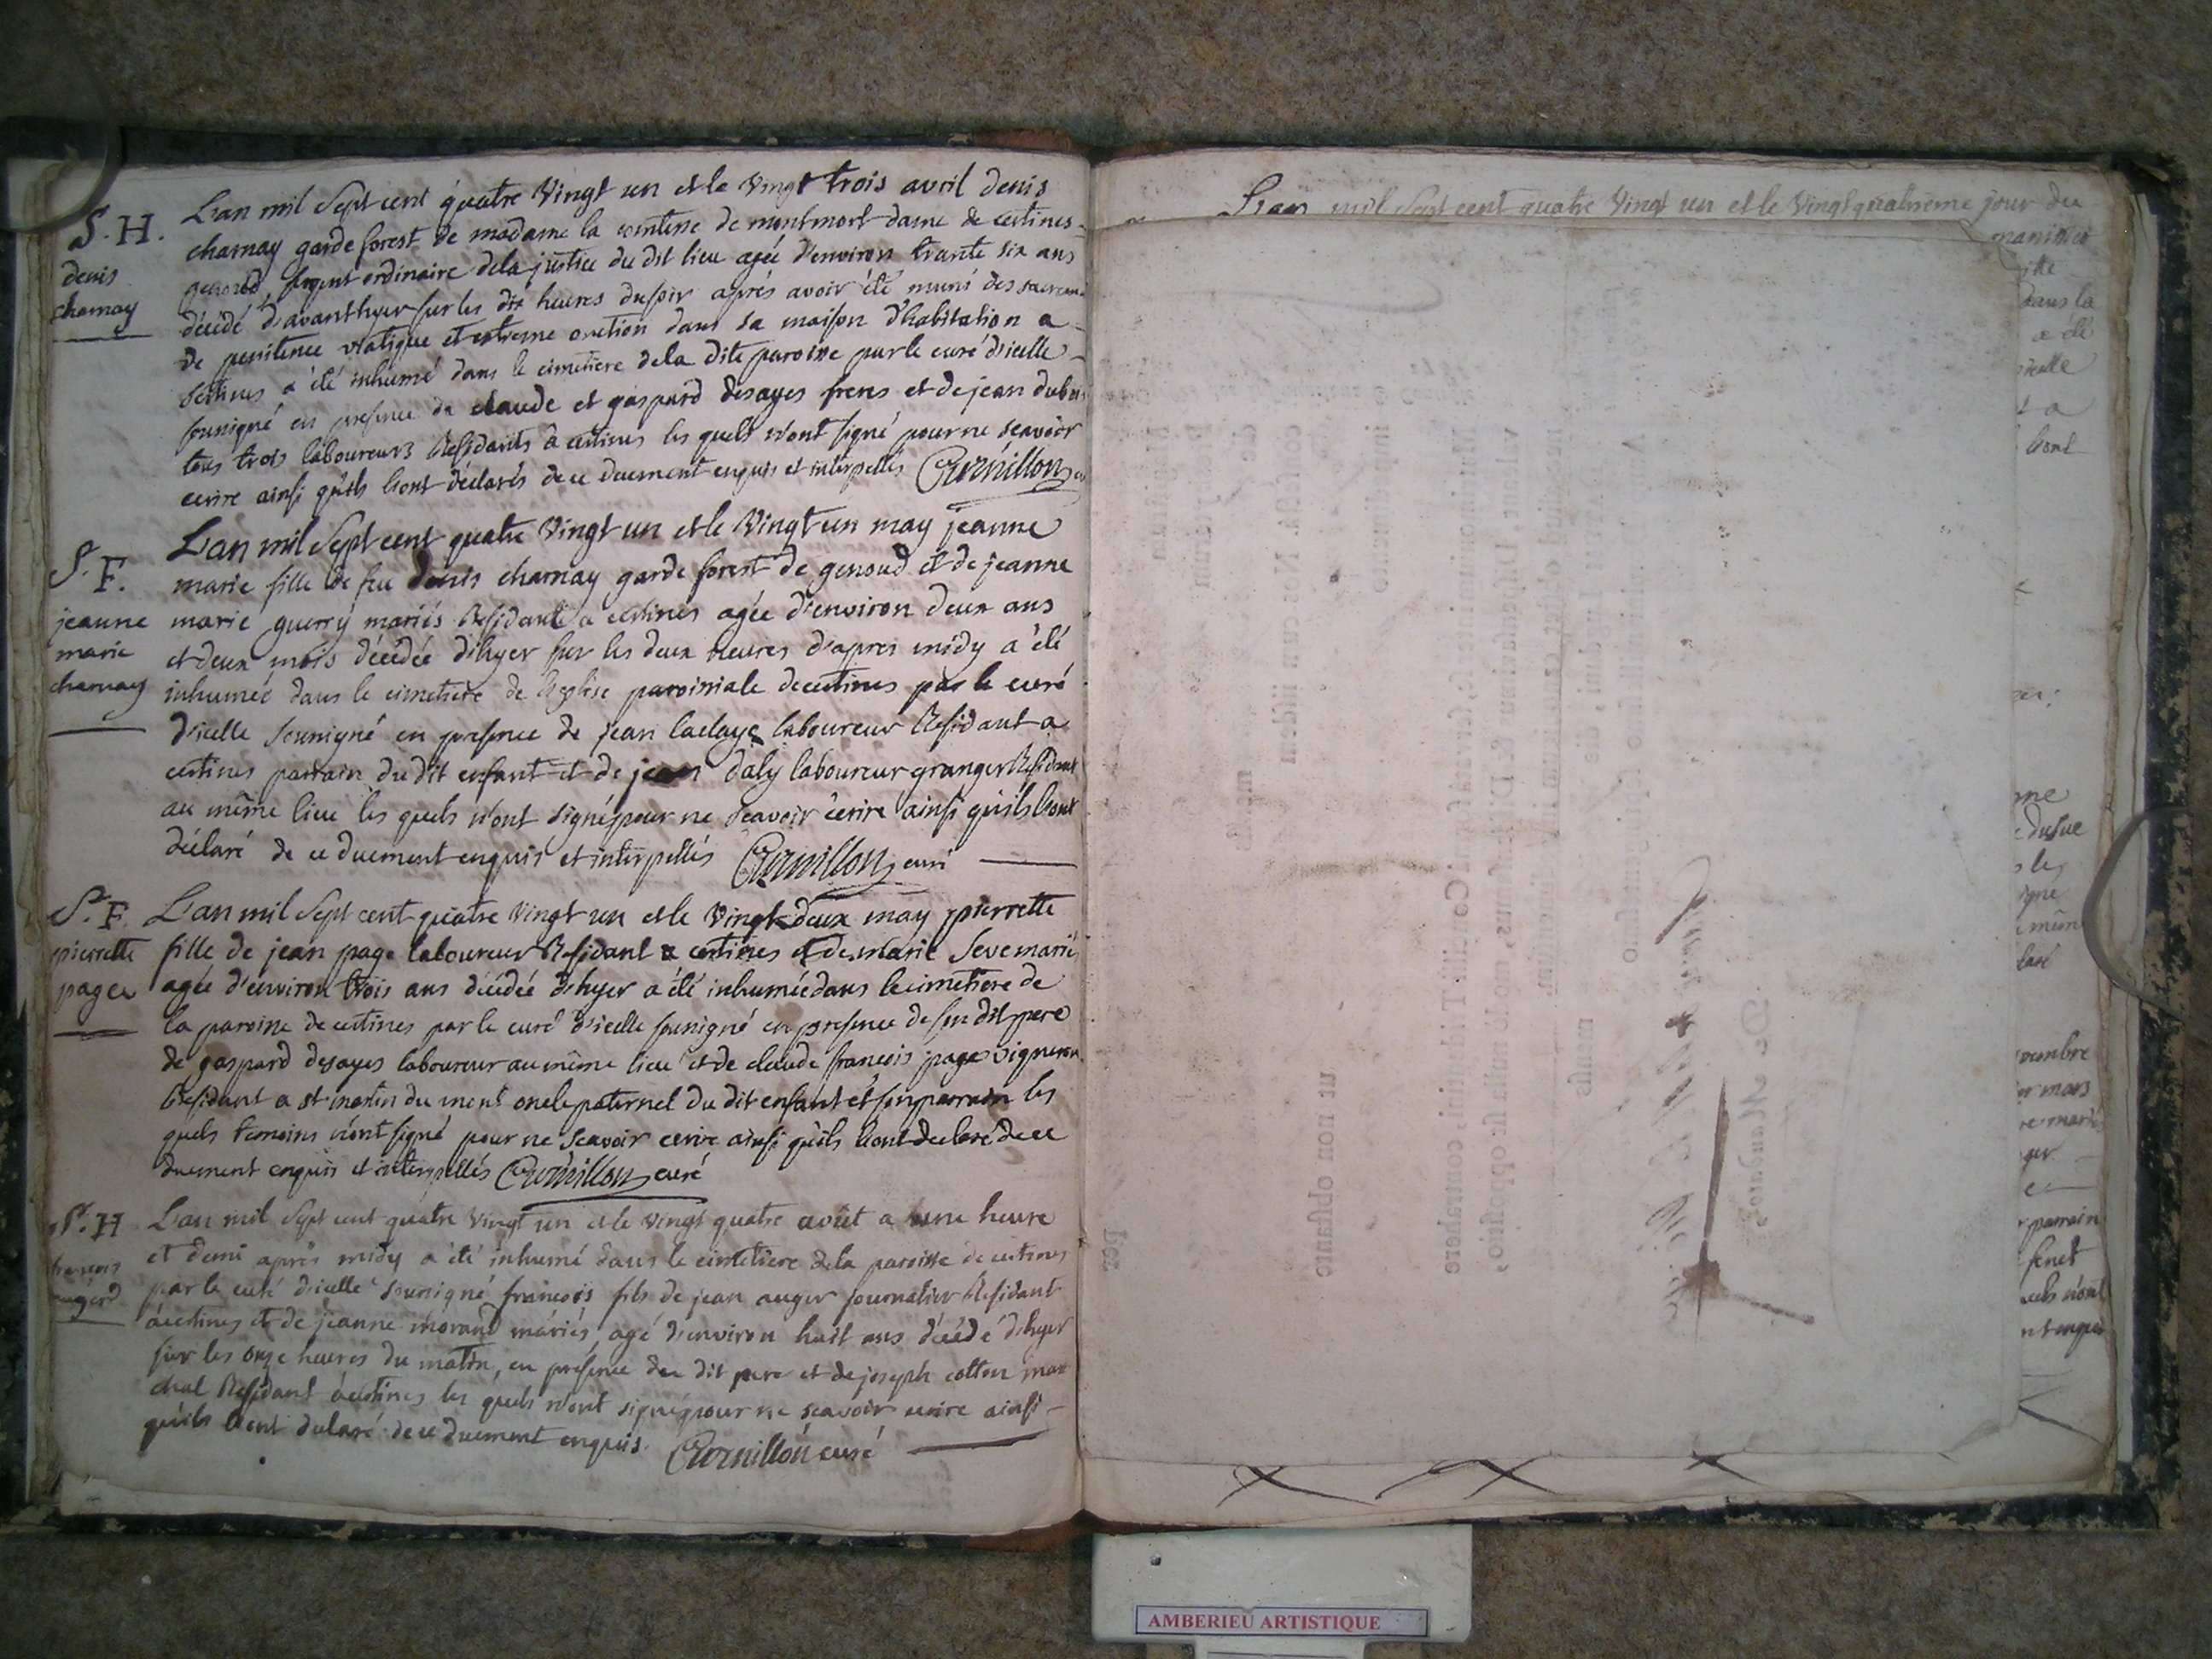 S. H.
denis
charnay
L'an mil Sept cent quatre Vingt un et le Vingt trois avril denis
charnay garde forest de madame la comtesse de montmort dame de certines
genoud sergent ordinaire dela justice du dit lieu agée d'environ trante six ans
décédé d'avanthyer sur les dix heures dusoir aprés avoir été muni des sacrem
de penitence viatique et extreme onction dans sa maison d'habitation a
sertines a été inhumé dans le cimetiere dela dite paroisse par le curé d'icelle
sousigné en presence de claude et gaspard desayes freres et de jean dubo
tous trois laboureurs Residants a certines les quels n'ont signé pour ne scavoir
ecrire ainsi quils l'ont déclarés de ce duement enquis et interpellés Cornillon
S. F.
jeanne
marie
charnay
L'an mil Sept cent quatre Vingt un et le Vingt un may jeanne
marie fille de feu denis charnay garde forest de genoud et de jeanne
marie guerry mariés Residants a certines agée d'environ deux ans
et deux mois décédée d'hyer sur les deux heures d'apres midy a été
inhumée dans le cimetiere de l'eglise paroissiale de certines par le curé
d'icelle sousigné en presence de jean laclaye laboureur Residant a
certines parrain du dit enfant et de jean daly laboureur granger Residant
au même lieu les quels n'ont signé pour ne scavoir écrire ainsi quils l'ont
déclaré de ce duement enquis et interpellés Cornillon curé
S. F.
pierrette
page
L'an mil Sept cent quatre Vingt un et le Vingt deux may pierrette
fille de jean page laboureur Residant a certines et de marie Seve mariés
agée d'environ trois ans décédée d'hyer a été inhumée dans le cimetiere de
la paroisse de certines par le curé d'icelle sousigné en presence de son dit pere
de gaspard desayes laboureur au même lieu et de claude francois page vigneron
Residant a st martin du mont oncle paternel du dit enfant et son parrain les
quels temoins n'ont signé pour ne Scavoir ecrire ainsi quils l'ont declaré de ce
duement enquis et interpellés Cornillon curé
S. H
francois
augerd
L'an mil Sept cent quatre Vingt un et le vingt quatre août a une heure
et demi aprés midy a été inhumé dans le cimetiere dela paroisse de certines
par le curé d'icelle sousigné francois fils de jean auger journalier Residant
a certines et de jeanne morand mariés, agé d'environ huit ans décédé d'hyer
sur les onze heures du matin, en présence du dit pere et de joseph cotton mar
chal Residant a certines les quels n'ont signé pour ne scavoir ecrire ainsi
quils l'ont dclaré de ce duement enquis. Cornillon curé
L'an mil Sept cent quatre Vingt un et le Vingt quatrieme jour du
dans la
a été
d'icelle
l'ont
vembre
mars
parrain
AMBERIEU ARTISTIQUE